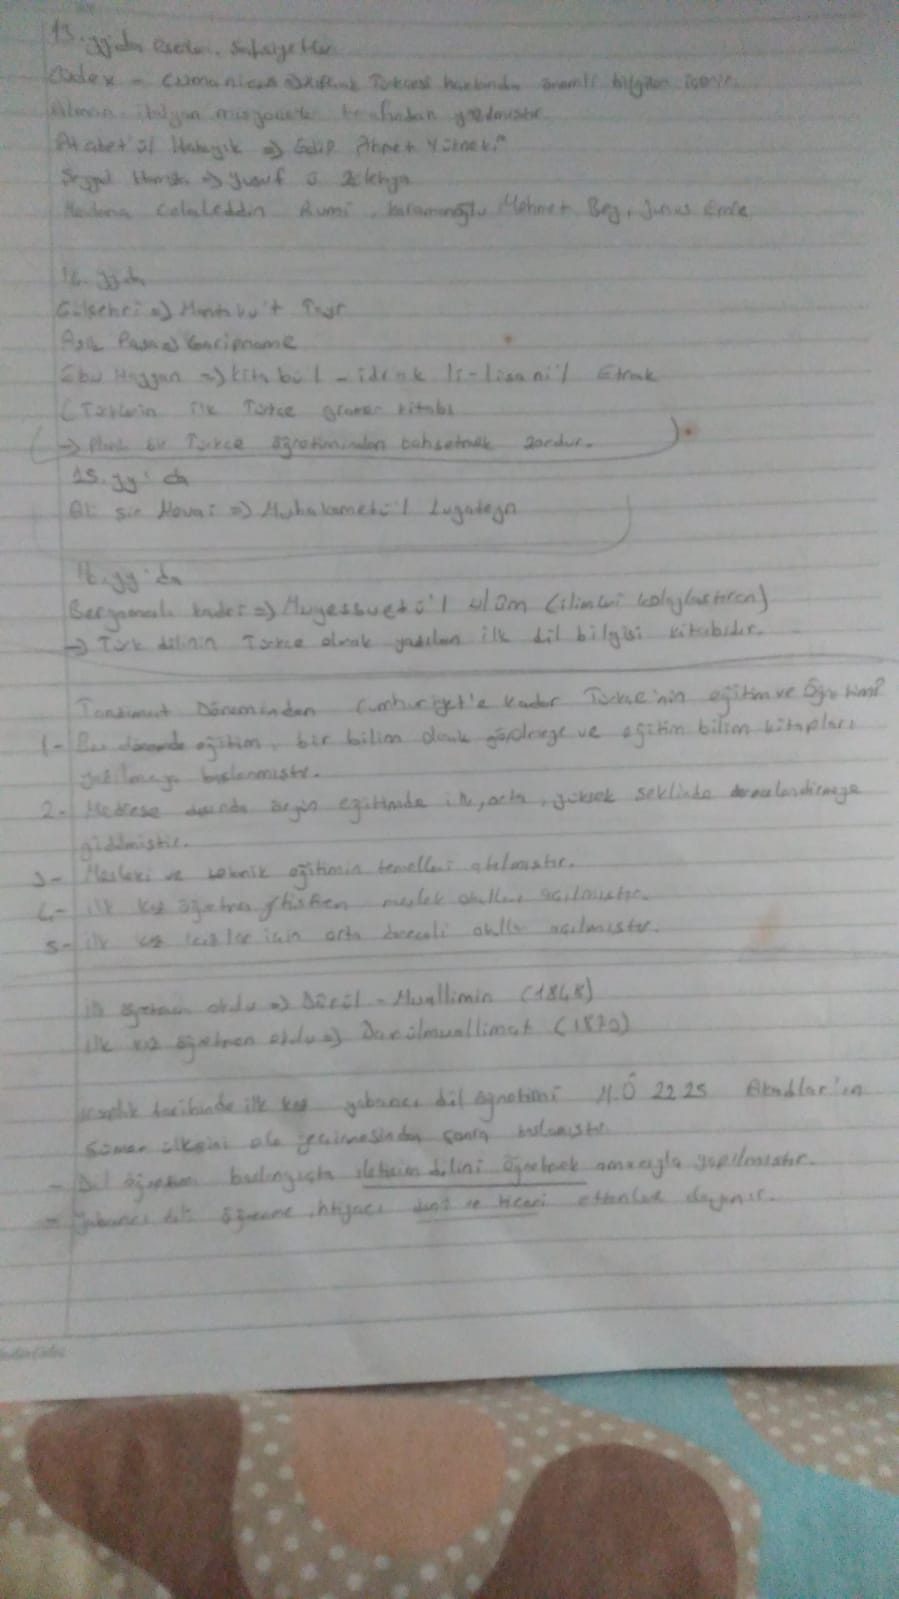 13. yy'da eserler, şahsiyetler
Codex - Cumanicus Kıpçak Türkcesi hakkında önemli bilgiler içerir.
Alman, İtalyan misyonerler tarafından yazılmıştır.
Atabet'ül Hakayık => Edip Ahmet Yükneki
=> Yusuf
Mevlana Celaleddin Rumi, Karamanoğlu Mehmet Bey, Yunus Emre
14. yy'da
Gülşehri => Mantıku't Tayr
Aşık Paşa => Garipname
Ebu Hayyan => Kitabül - idrak li-lisani'l Etrak
(Türklerin ilk Türkçe gramer kitabı
-> bir Türkce öğretiminden bahsetmek zordur.
15. yy'da
Ali şir Nevai => Muhakemetü'l Lugateyn
16. yy'da
Bergamalı kadri => Muyessuetü'l ulûm (ilimleri kolaylaştıran)
-> Türk dilinin Türkce olarak yazılan ilk dil bilgisi kitabıdır.
Tanzimat Döneminden Cumhuriyet'e kadar Türkce'nin eğitim ve Öğretimi
1- Bu dönemde eğitim, bir bilim olarak görülmeye ve eğitim bilim kitapları
yazılmaya başlanmıştır.
2- Medrese dışında örgün eğitimde ilk, orta, yüksek seklinde derecelendirmeye
gidilmistir.
3- Mesleki ve teknik eğitimin temelleri atılmıştır.
4- ilk kez öğretmen yetiştiren meslek okulları açılmıştır.
5- ilk kez kızlar için orta dereceli okullar açılmıştır.
ilk öğretmen okulu => Dârül - Muallimin (1848)
ilk kız öğretmen okulu => Darülmuallimat (1870)
insanlık tarihinde ilk kez yabancı dil öğretimi M.Ö 2225 Akadlar'ın
Sümer ülkesini ele geçirmesinden sonra başlamıştır.
- Dil öğretimi başlangıçta iletisim dilini öğretmek amacıyla yapılmıştır.
- Yabancı dil öğrenme ihtiyacı dini ve ticari etkenlere dayanır.